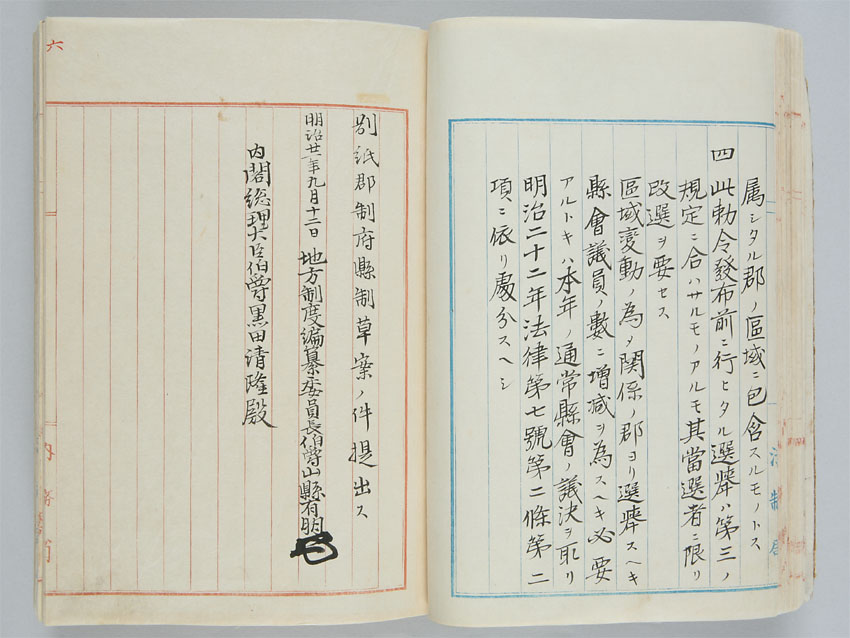 属シタル郡ノ區域ニ包含スルモノトス
四 此勅令發布前ニ行ヒタル選擧ハ第三ノ
規定ニ合ハサルモノアルモ其當選者ニ限リ
改選ヲ要セス
區域変動ノ為メ関係ノ郡ヨリ選擧スヘキ
縣會議員ノ數ニ増減ヲ為スヘキ必要
アルトキハ本年ノ通常縣會ノ議決ヲ取リ
明治二十二年法律第七號第二條第二
項ニ依リ處分スヘシ
法制局
別紙郡制府縣制草案ノ件提出ス
明治廿一年九月十二日 地方制度編纂委員長伯爵山縣有朋
内閣総理大臣伯爵黒田清隆殿
六
内務省